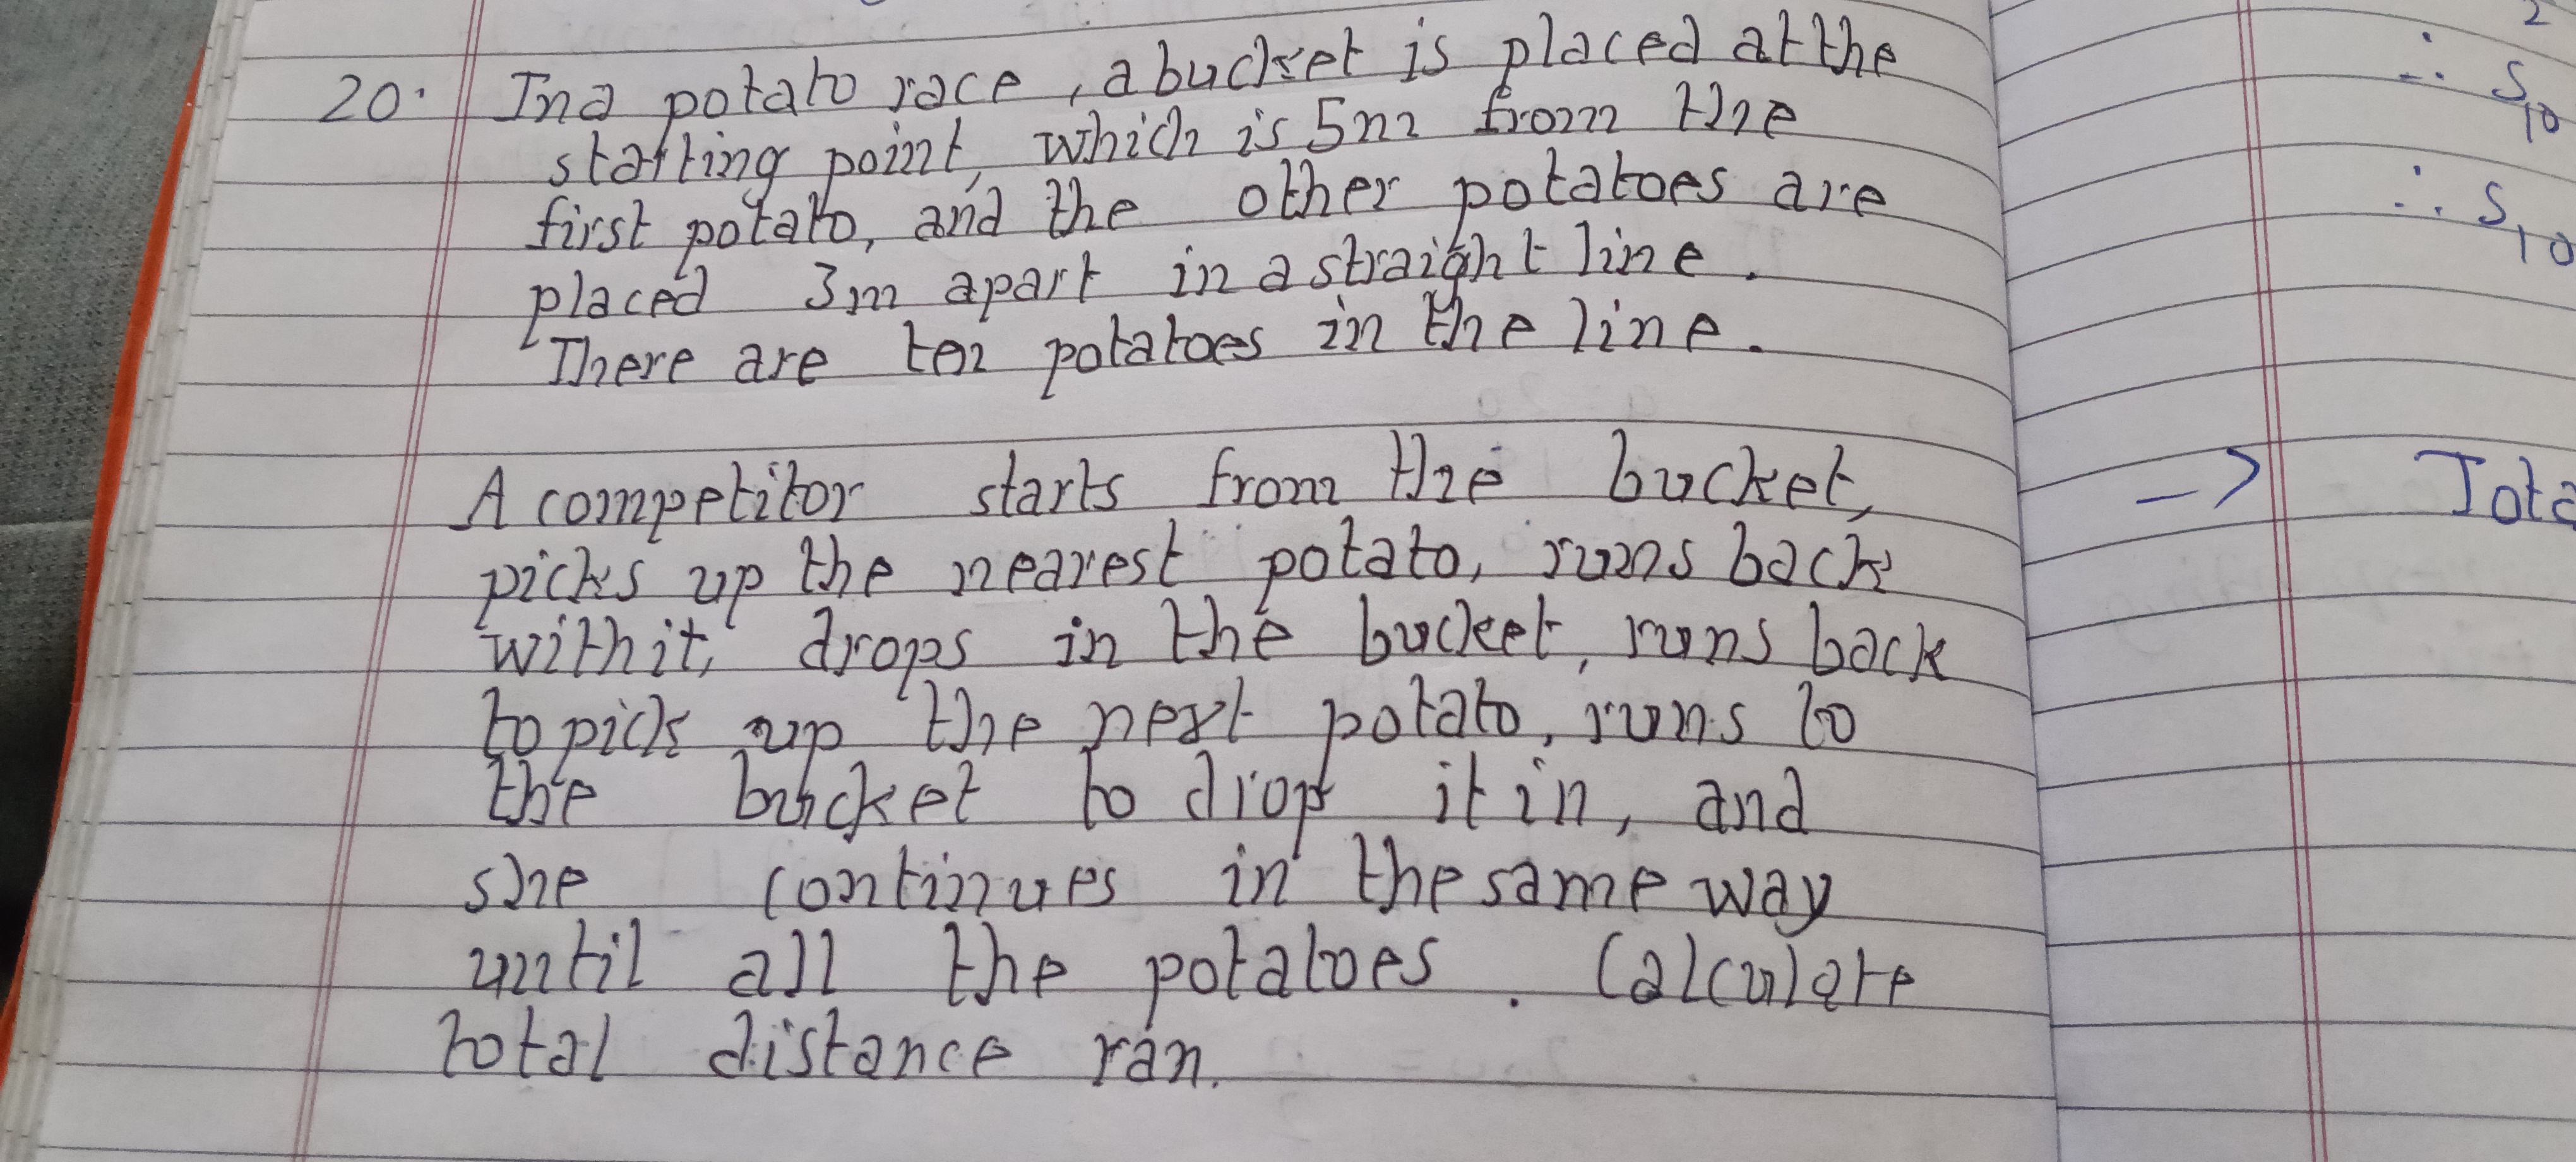 20. In a potato race, a bucket is placed at the
starting point, which is 5m from the
first potato, and the other potatoes are
placed 3m apart in a straight line.
There are ten potatoes in the line.
A competitor starts from the bucket,
picks up the nearest potato, runs back
with it, drops in the bucket, runs back
to pick up the next potato, runs to
the bucket to drop it in, and
she continues in the same way
until all the potatoes. Calculate
total distance ran.
2
∴ S10
∴ S10
->